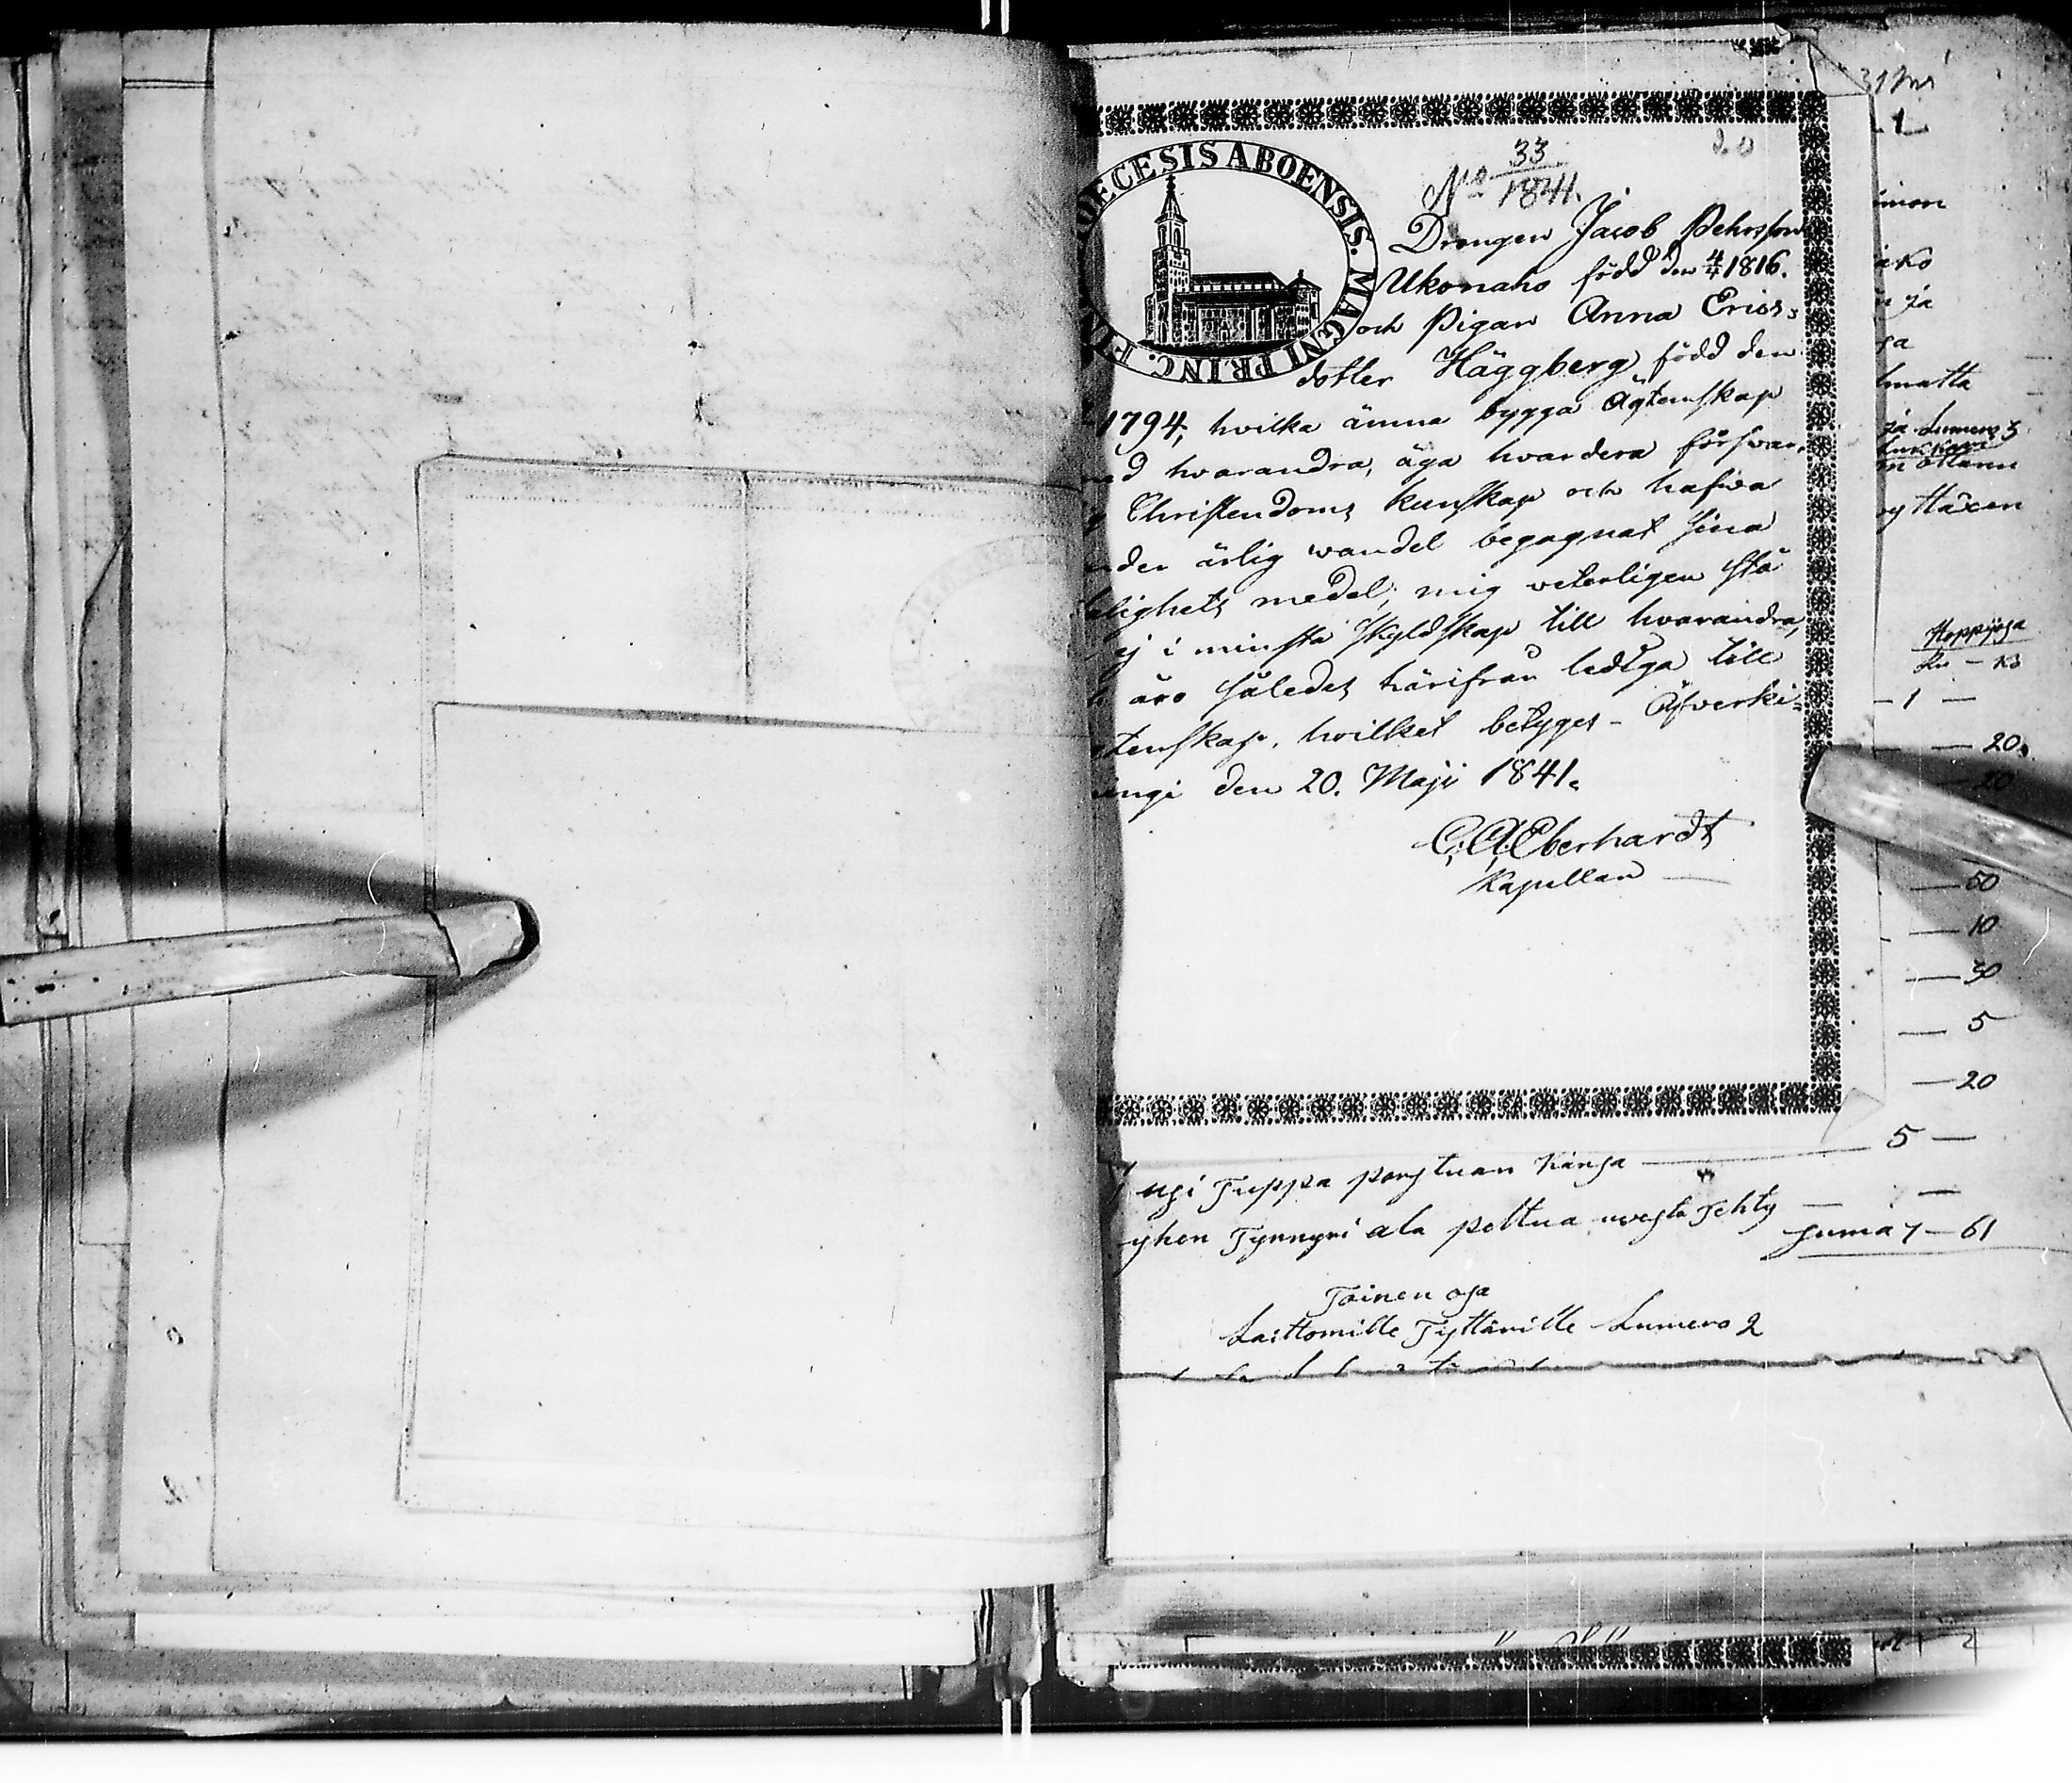 DIOECESIS ABOENSIS. MAGNI PRINC. FIN
33
No 1841.
20
Drengen Jacob Pehrsson
Ukonaho född den 4/4 1816.
och Pigan Anna Erics-
dotter Häggberg född den
1794, hvilka ämna bygga Ägtenskap
med hvarandra, äga hvardera försvar-
Christendoms kunskap och hafva
under ärlig vandel begagnat sina
salighets medel; mig veterligen stå
ej i minsta Skyldskap till hvarandra,
äro således härifrån lediga till
tenskap, hvilket betyges - Öfverki-
ingi den 20. Maji 1841.
C. A. Eberhardt
Kapellan
31
1
ja
matta
ja Lumero 3
Hoppjssa
Ru - Ko
- 1 -
- 20
- 20
- 50
- 10
- 30
- 5
- 20
5 -
ngi Tuppa porstuan Kansa
yhen Tynnyri ala peltua Tehty
suma 7 - 61
Toinen osa
Laittomille Tyttärille Lumero 2